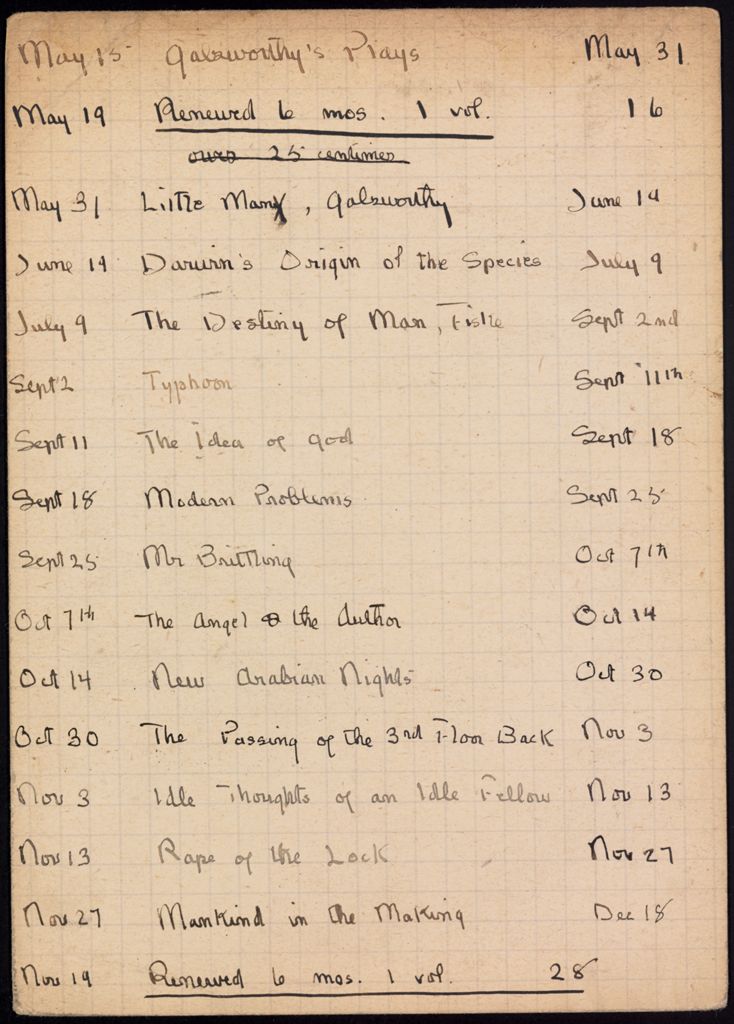 May 15 Galsworthy's Plays May 31
May 19 Renewed 6 mos. 1 vol. 16
owes 25 centimes
May 31 Little Man, Galsworthy June 14
June 14 Darwin's Origin of the Species July 9
July 9 The Destiny of Man, Fiske Sept 2nd
Sept 2 Typhoon Sept 11th
Sept 11 The Idea of God Sept 18
Sept 18 Modern Problems Sept 25
Sept 25 Mr Brittling Oct 7th
Oct 7th The Angel & the Author Oct 14
Oct 14 New Arabian Nights Oct 30
Oct 30 The Passing of the 3rd Floor Back Nov 3
Nov 3 Idle Thoughts of an Idle Fellow Nov 13
Nov 13 Rape of the Lock Nov 27
Nov 27 Mankind in the Making Dec 18
Nov 19 Renewed 6 mos. 1 vol. 28